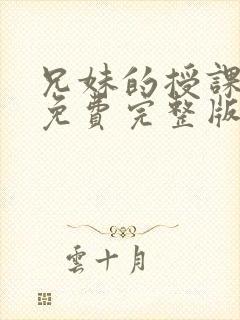 兄妹的授課
免費完整版
雲十月